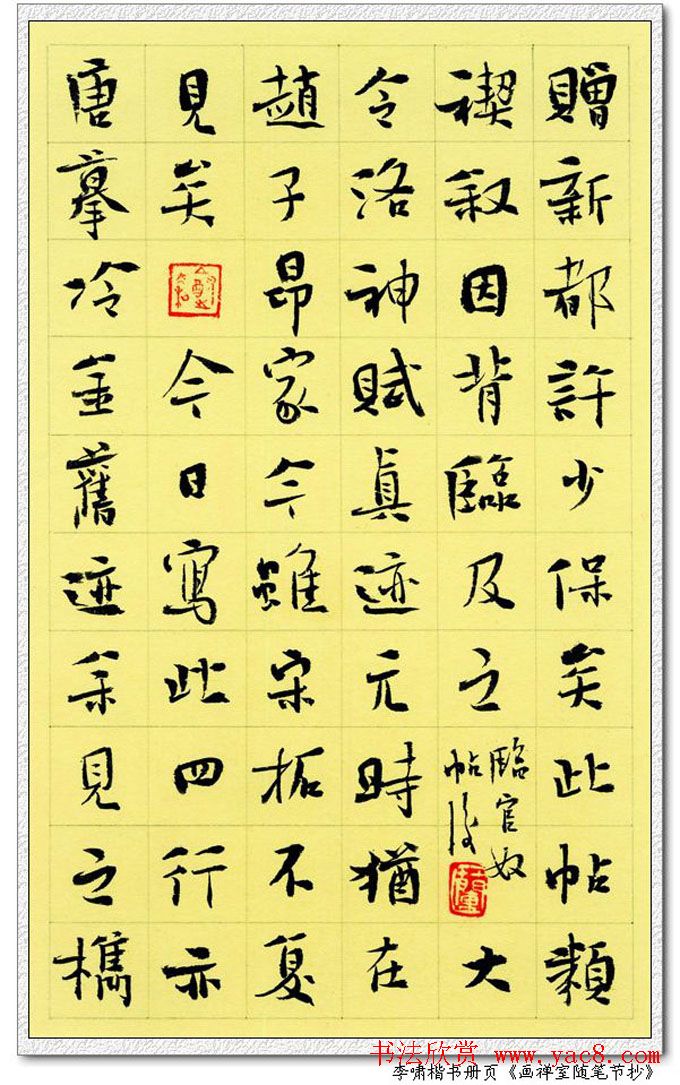 贈新都許少保矣此帖類
禊叙因背臨及之
臨官奴
帖後
大
令洛神賦真迹元時猶在
趙子昂家今雖宋拓不復
見矣
今日寫此四行亦
唐摹冷金舊迹余見之檇
书法欣赏 www.yac8.com
李啸楷书册页《画禅室随笔节抄》